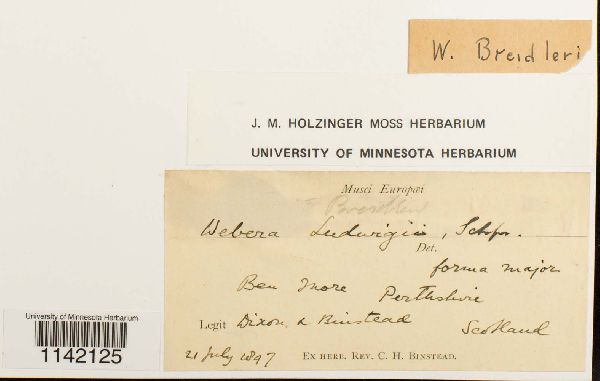 W. Breidleri
J. M. HOLZINGER MOSS HERBARIUM
UNIVERSITY OF MINNESOTA HERBARIUM
Musci Europæi
Breidleri
Webera Ludwigii, Schpr.
Det.
forma major
Ben More Perthshire
Legit Dixon & Binstead Scotland
21 July 1897 Ex herb. Rev. C. H. Binstead.
University of Minnesota Herbarium
1142125